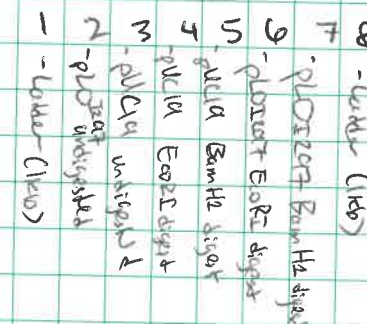 1 - Ladder (1kb)
2 - pLOI297 undigested
3 - pUC19 undigested
4 - pUC19 EcoRI digest
5 - pUC19 BamH1 digest
6 - pLOI297 EcoRI digest
7 - pLOI297 BamH1 diges
8 - Ladder (1kb)